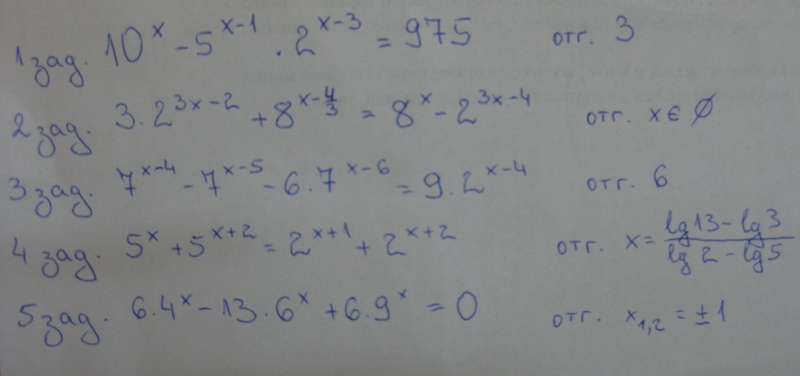 1 зад. 10^x - 5^(x-1) . 2^(x-3) = 975 отг. 3
2 зад. 3. 2^(3x-2) + 8^(x-4/3) = 8^x - 2^(3x-4) отг. x ∈ ∅
3 зад. 7^(x-4) - 7^(x-5) - 6.7^(x-6) = 9.2^(x-4) отг. 6
4 зад. 5^x + 5^(x+2) = 2^(x+1) + 2^(x+2) отг. x = (lg13 - lg3)/(lg2 - lg5)
5 зад. 6.4^x - 13.6^x + 6.9^x = 0 отг. x_1,2 = ±1